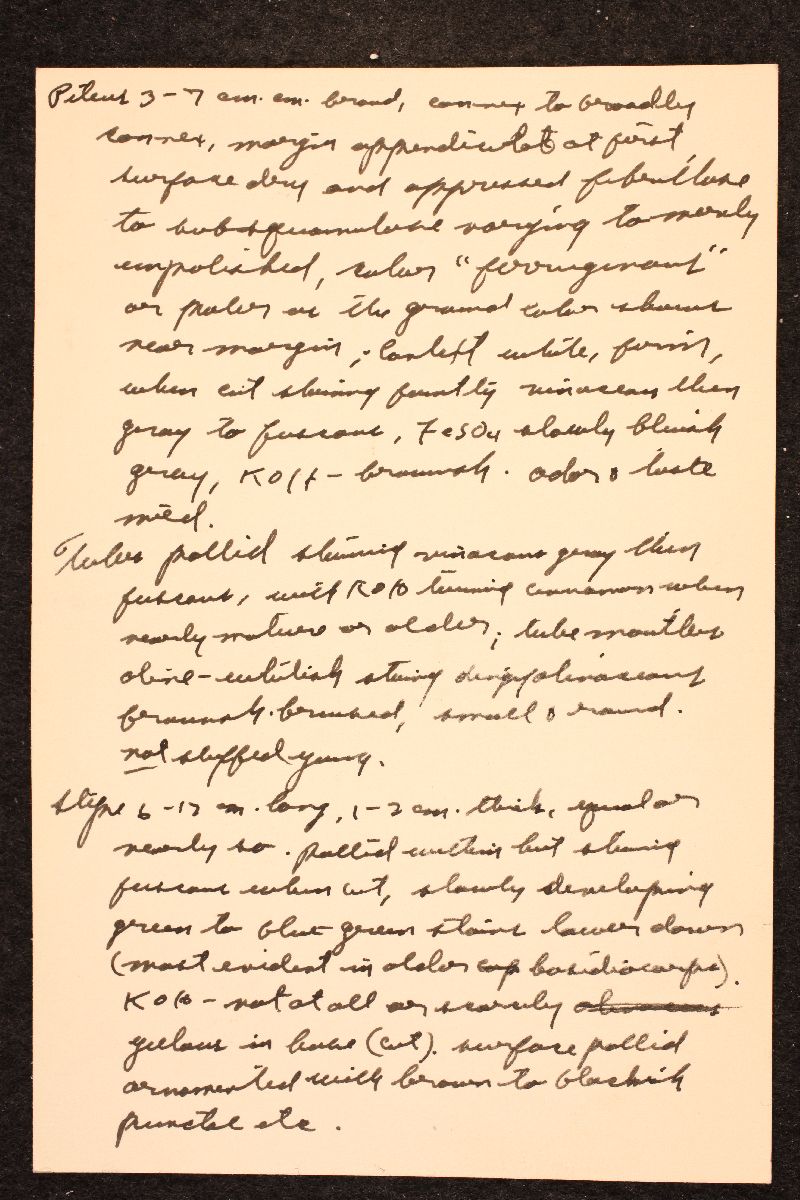 Pileus 3-7 cm. cm. broad, convex to broadly
convex, margin appendiculate at first,
surface dry and appressed fibrillose
to subsquamulose varying to merely
unpolished, color "ferruginous"
or paler as the ground color shows
near margin; Context white, firm,
when cut staining faintly vinaceous then
gray to fuscous, FeSO4 slowly bluish
gray, KOH - brownish. odor & taste
mild.
Tubes pallid staining vinaceous gray then
fuscous, with KOH turning cinnamon when
nearly mature or older; tube mouths
olive-whitish staining dingy
brownish bruised, small & round.
not stuffed young.
Stipe 6-12 cm. long, 1-2 cm. thick, equal or
nearly so. pallid within but staining
fuscous when cut, slowly developing
green to blue green stains lower down
(most evident in older cap basidiocarps).
KOH - not at all or scarcely
yellow in base (cut). surface pallid
ornamented with brown to blackish
punctae etc.